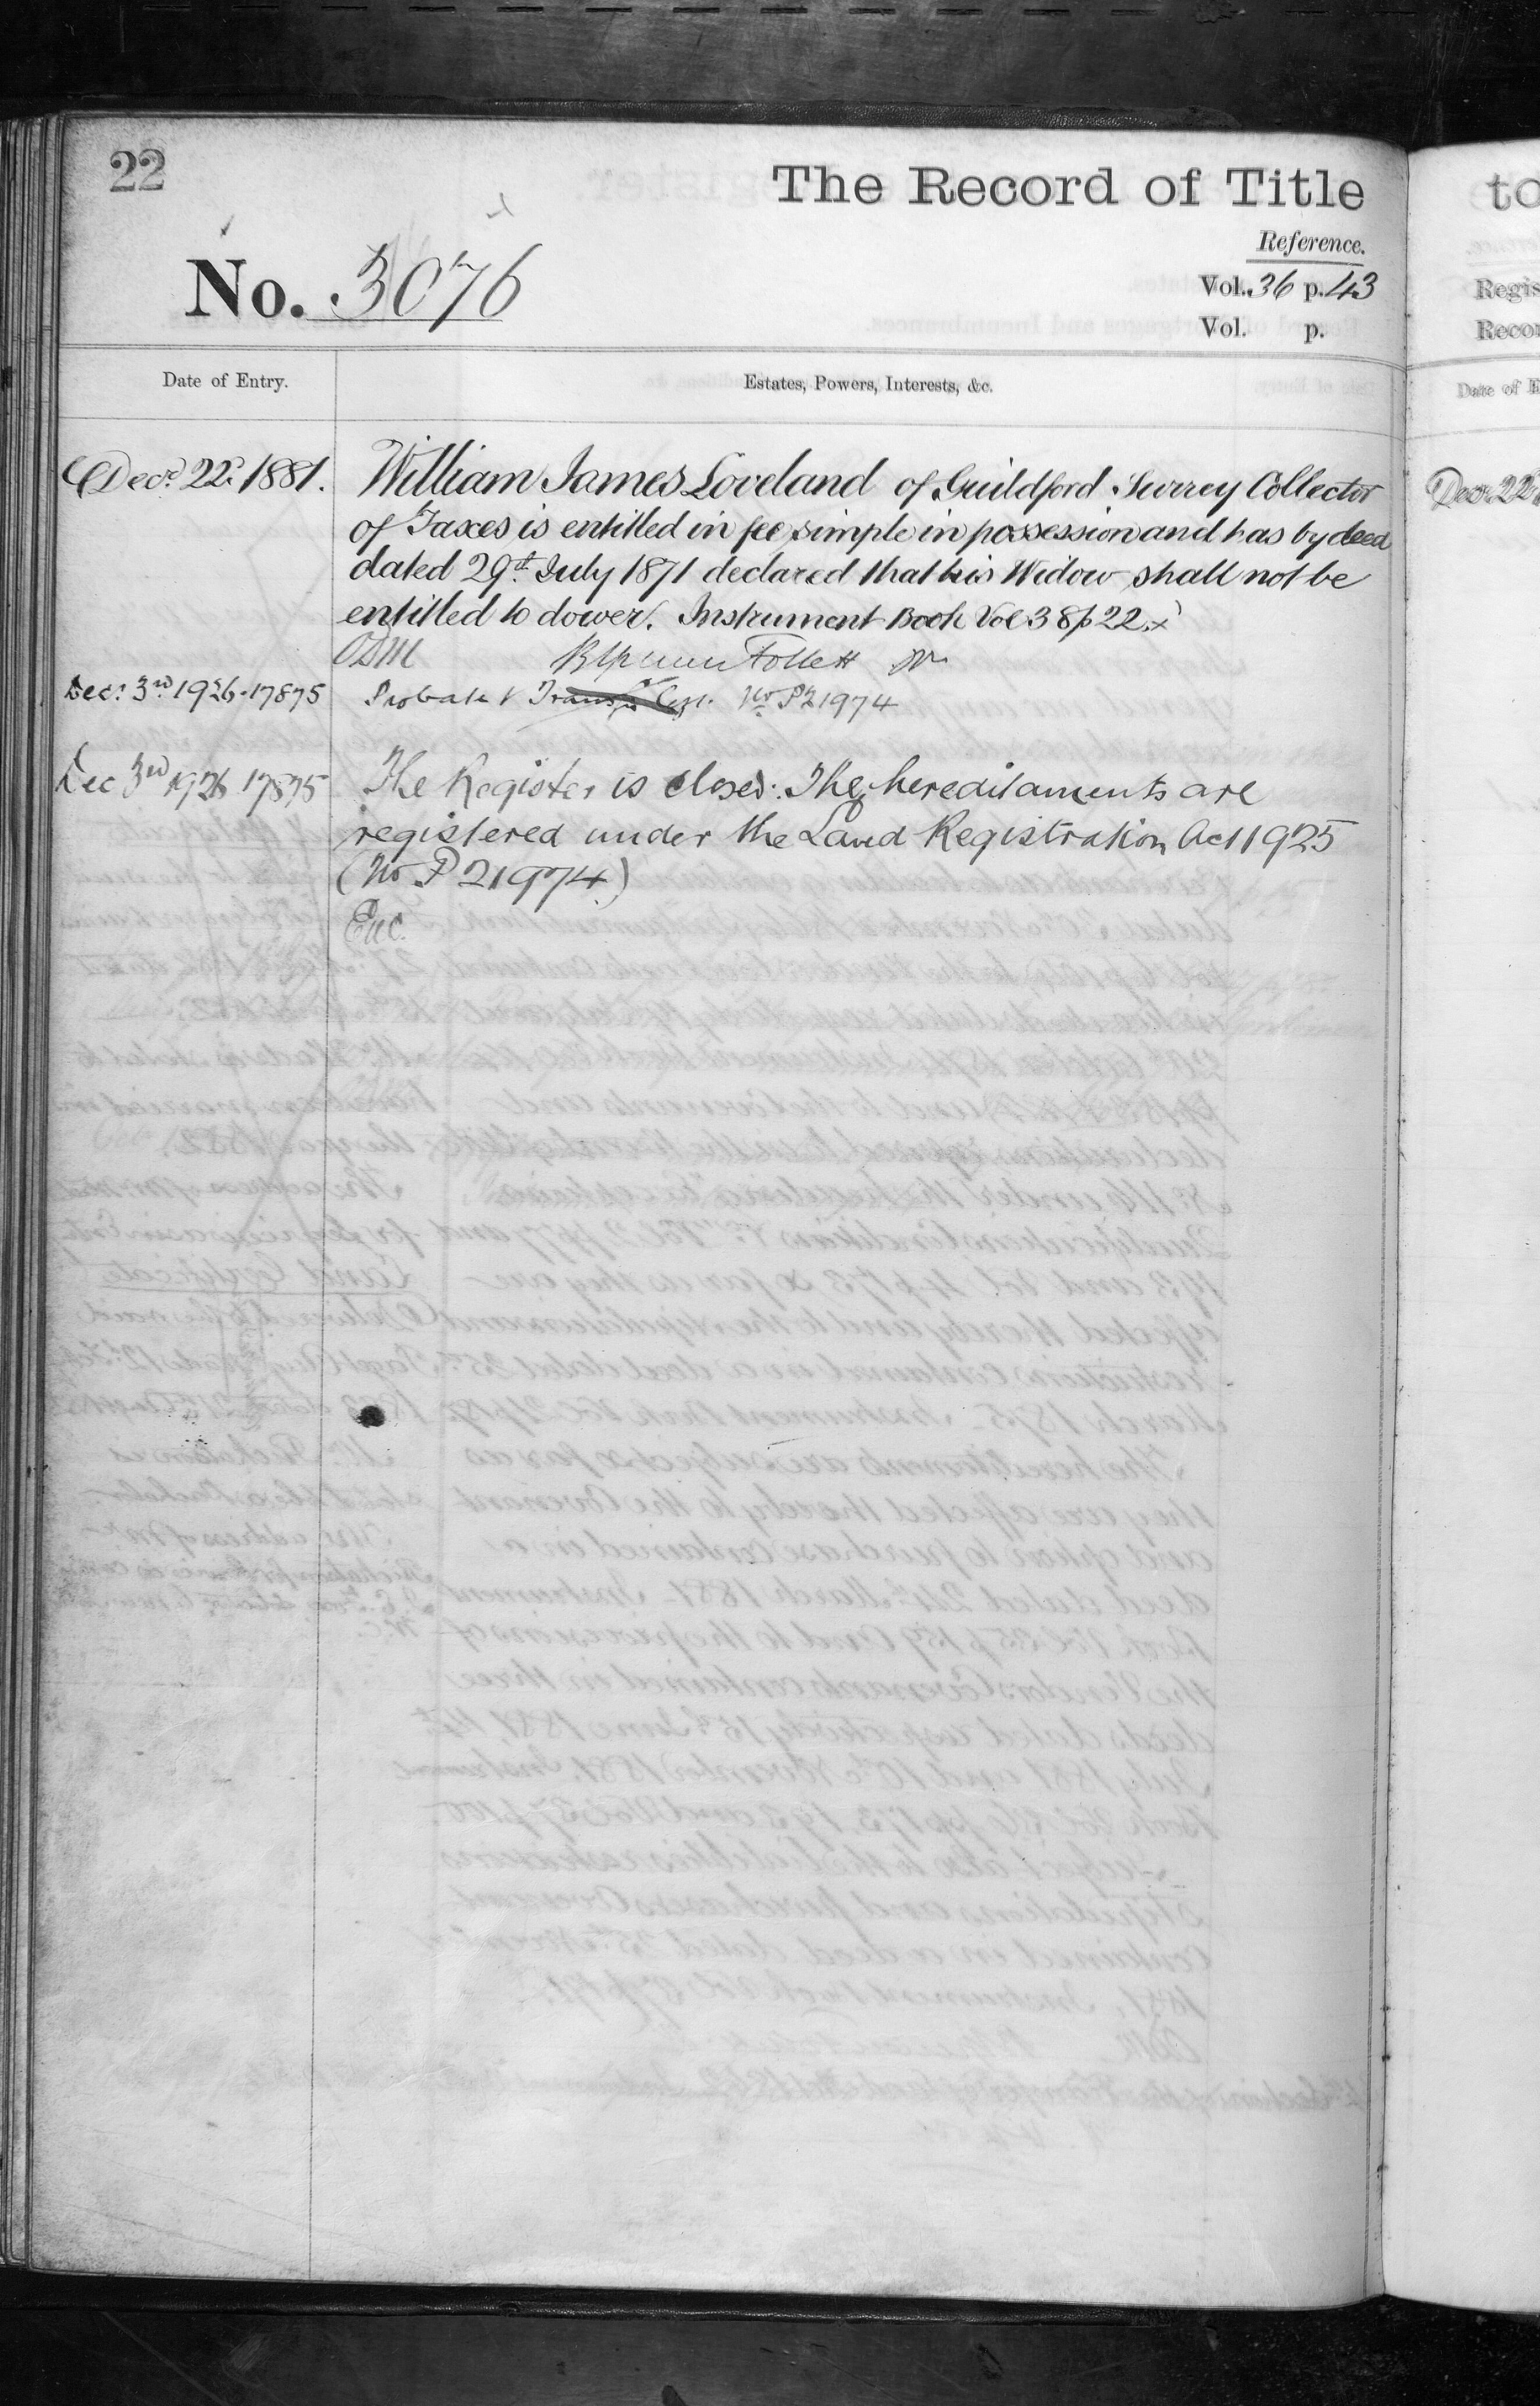 22
The Record of Title
Reference.
No. 3076
Vol. 36 p. 43
Vol. p.
Date of Entry.
Estates, Powers, Interests, &c.
Decr. 22. 1881.
William James Loveland of Guildford Surrey Collector
of Taxes is entitled in fee simple in possession and has by deed
dated 29th July 1871 declared that his Widow shall not be
entitled to dower. Instrument Book Vol 38 p 22.
Follett
Dec. 3rd 1926 - 17875
Probate No P21974
Dec 3rd 1926 17875
The Register is closed. The hereditaments are
registered under the Land Registration Act 1925
(No P 21974)
to
Regis
Recor
Date of E
Decr 22